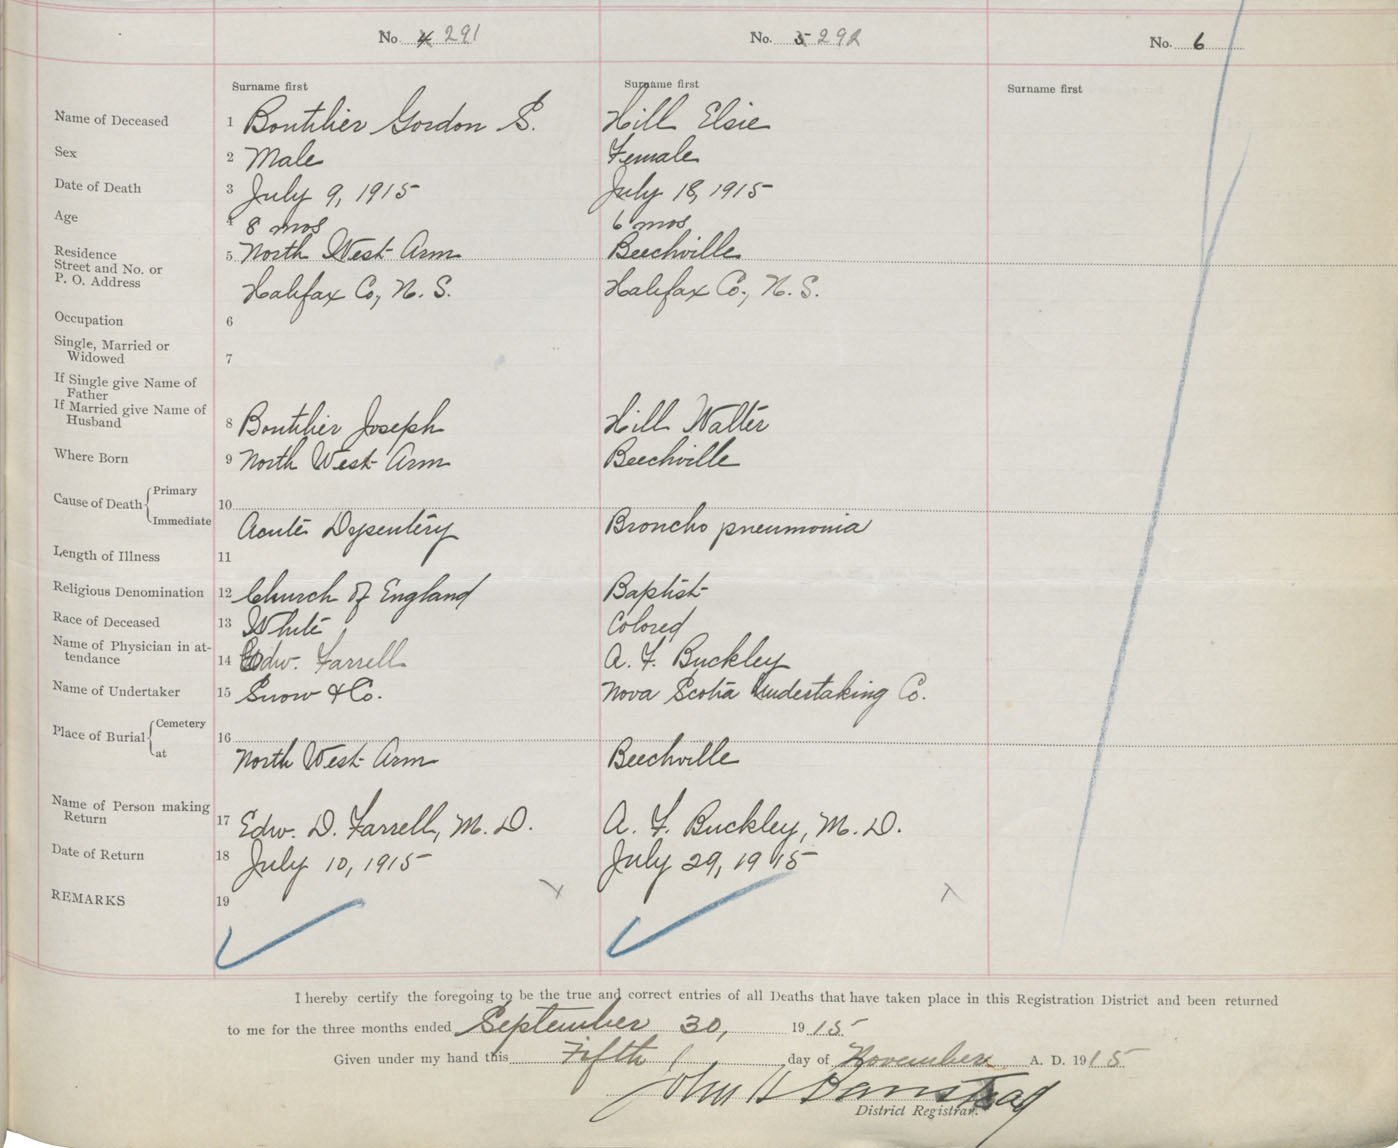 No. 4 291 No. 5 292 No. 6
Surname first Surname first Surname first
Name of Deceased 1 Boutilier Gordon S. Hill Elsie
Sex 2 Male Female
Date of Death 3 July 9, 1915 July 18, 1915
Age 4 8 mos 6 mos
Residence 5 North West Arm Beechville
Street and No. or
P. O. Address Halifax Co, N. S. Halifax Co., N. S.
Occupation 6
Single, Married or
Widowed 7
If Single give Name of
Father
If Married give Name of
Husband 8 Boutilier Joseph Hill Walter
Where Born 9 North West Arm Beechville
Cause of Death Primary 10
Immediate Acute Dysentery Broncho pneumonia
Length of Illness 11
Religious Denomination 12 Church of England Baptist
Race of Deceased 13 White Colored
Name of Physician in at-
tendance 14 Edw. Farrell A. F. Buckley
Name of Undertaker 15 Snow & Co. Nova Scotia Undertaking Co.
Place of Burial Cemetery 16
at North West Arm Beechville
Name of Person making
Return 17 Edw. D. Farrell, M. D. A. F. Buckley, M. D.
Date of Return 18 July 10, 1915 July 29, 1915
REMARKS 19
I hereby certify the foregoing to be the true and correct entries of all Deaths that have taken place in this Registration District and been returned
to me for the three months ended September 30, 1915
Given under my hand this Fifth day of November A. D. 1915
John H
District Registrar.